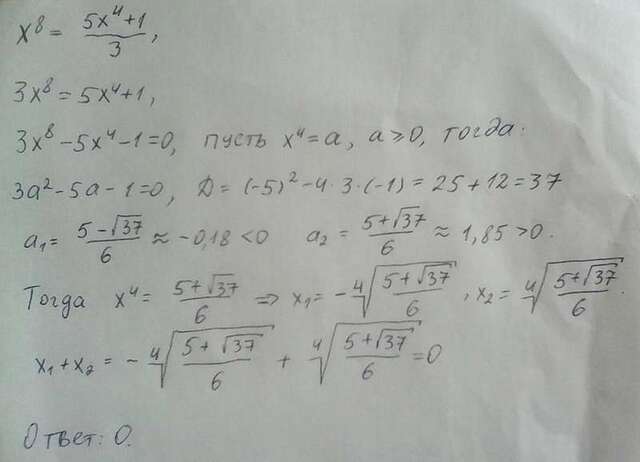 x⁸ = (5x⁴+1)/3,
3x⁸ = 5x⁴+1,
3x⁸ - 5x⁴ - 1 = 0, пусть x⁴ = a, a ≥ 0, тогда:
3a² - 5a - 1 = 0, D = (-5)² - 4·3·(-1) = 25 + 12 = 37
a₁ = (5-√37)/6 ≈ -0,18 < 0 a₂ = (5+√37)/6 ≈ 1,85 > 0.
Тогда x⁴ = (5+√37)/6 => x₁ = -⁴√((5+√37)/6), x₂ = ⁴√((5+√37)/6).
x₁ + x₂ = -⁴√((5+√37)/6) + ⁴√((5+√37)/6) = 0
Ответ: 0.